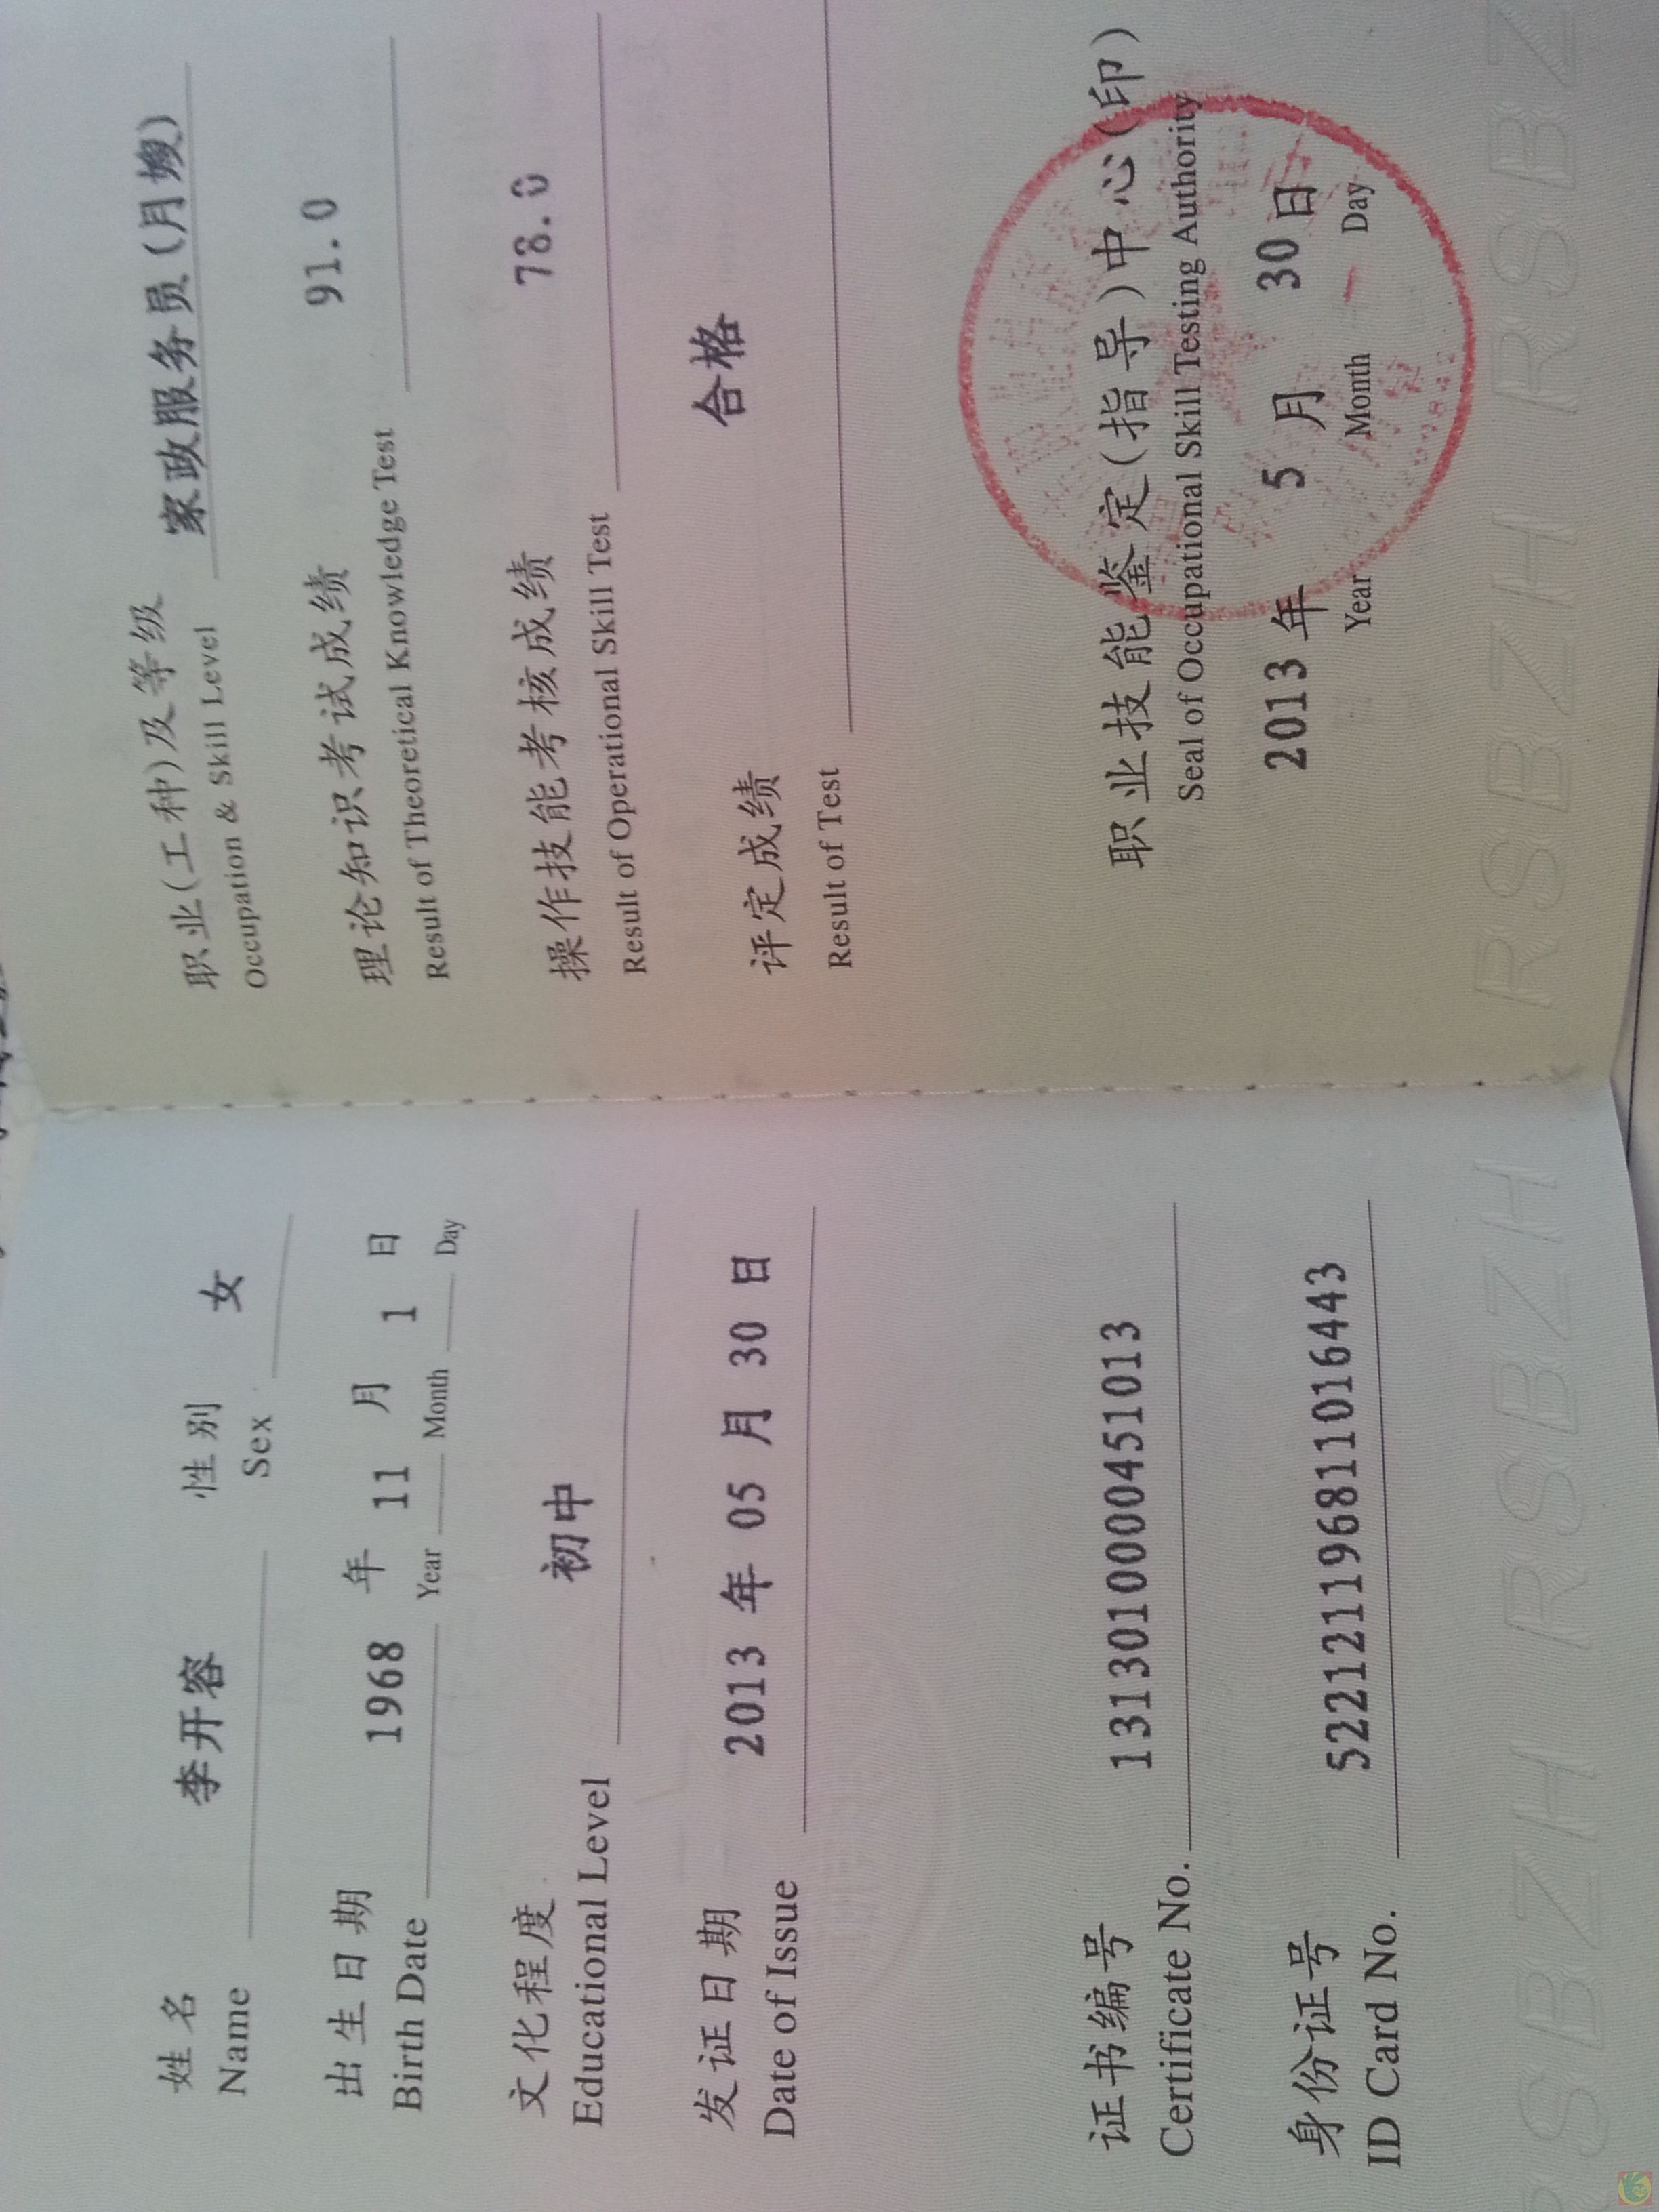 姓名 李开容 性别 女
Name Sex
出生日期 1968 年 11 月 1 日
Birth Date Year Month Day
文化程度 初中
Educational Level
发证日期 2013 年 05 月 30 日
Date of Issue
证书编号 1313010000451013
Certificate No.
身份证号 522121196811016443
ID Card No.
职业(工种)及等级 家政服务员(月嫂)
Occupation & Skill Level
理论知识考试成绩 91.0
Result of Theoretical Knowledge Test
操作技能考核成绩 78.0
Result of Operational Skill Test
评定成绩 合格
Result of Test
职业技能鉴定(指导)中心(印)
Seal of Occupational Skill Testing Authority
2013 年 5 月 30 日
Year Month Day
RSBZH RSBZH RSBZH RSBZ